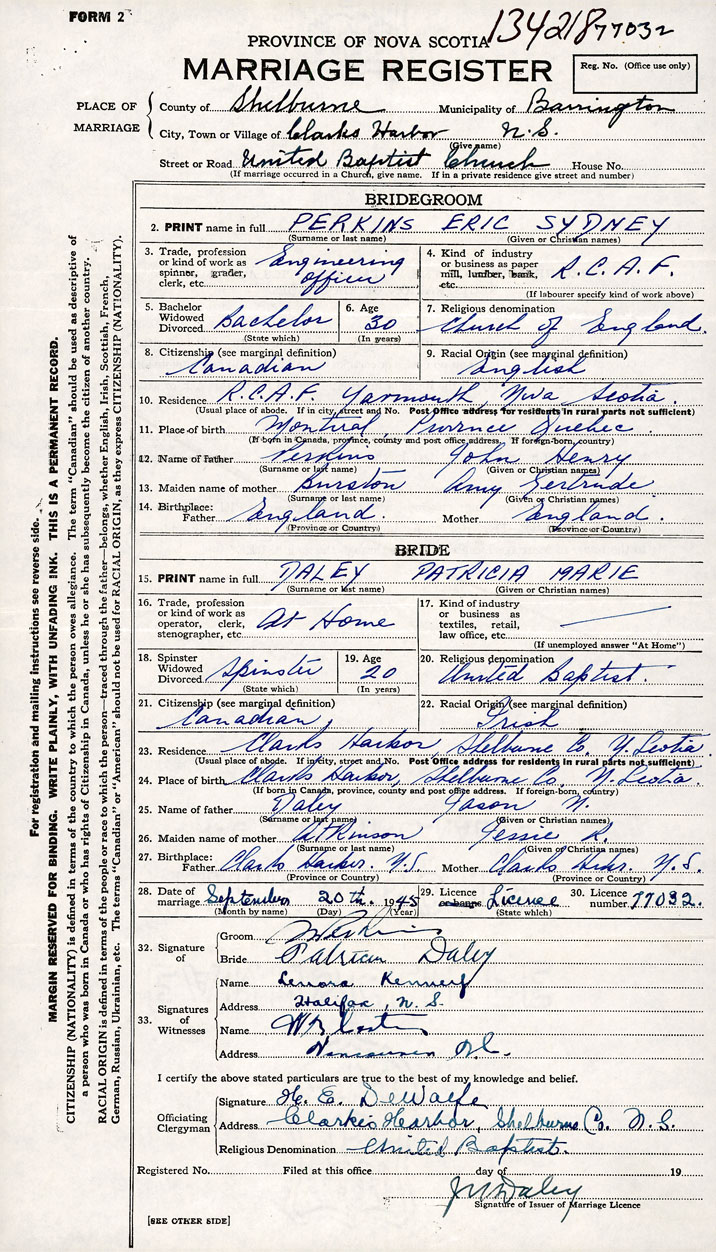 FORM 2
134218 77032
PROVINCE OF NOVA SCOTIA
MARRIAGE REGISTER
Reg. No. (Office use only)
PLACE OF MARRIAGE
County of Shelburne Municipality of Barrington
City, Town or Village of Clarks Harbor N.S.
(Give name)
Street or Road United Baptist Church House No.
(If marriage occurred in a Church, give name. If in a private residence give street and number)
BRIDEGROOM
2. PRINT name in full PERKINS ERIC SYDNEY
(Surname or last name) (Given or Christian names)
3. Trade, profession or kind of work as spinner, grader, clerk, etc. Engineering officer
4. Kind of industry or business as paper mill, lumber, bank, etc. R.C.A.F.
(If labourer specify kind of work above)
5. Bachelor Widowed Divorced Bachelor
(State which)
6. Age 30
(In years)
7. Religious denomination
Church of England.
8. Citizenship (see marginal definition)
Canadian
9. Racial Origin (see marginal definition)
English
10. Residence R.C.A.F. Yarmouth, Nova Scotia.
(Usual place of abode. If in city, street and No. Post Office address for residents in rural parts not sufficient)
11. Place of birth Montreal, Province Quebec.
(If born in Canada, province, county and post office address. If foreign-born, country)
12. Name of Father Perkins John Henry
(Surname or last name) (Given or Christian names)
13. Maiden name of mother Burston Amy Gertrude
(Surname or last name) (Given or Christian names)
14. Birthplace: Father England. Mother England.
(Province or Country) (Province or Country)
BRIDE
15. PRINT name in full DALEY PATRICIA MARIE
(Surname or last name) (Given or Christian names)
16. Trade, profession or kind of work as operator, clerk, stenographer, etc. At Home
17. Kind of industry or business as textiles, retail, law office, etc.
(If unemployed answer "At Home")
18. Spinster Widowed Divorced Spinster
(State which)
19. Age 20
(In years)
20. Religious denomination
United Baptist.
21. Citizenship (see marginal definition)
Canadian,
22. Racial Origin (see marginal definition)
Irish
23. Residence Clarks Harbor, Shelburne Co. N. Scotia.
(Usual place of abode. If in city, street and No. Post Office address for residents in rural parts not sufficient)
24. Place of birth Clarks Harbor, Shelburne Co., N. Scotia.
(If born in Canada, province, county and post office address. If foreign-born, country)
25. Name of father Daley Jason N.
(Surname or last name) (Given or Christian names)
26. Maiden name of mother Atkinson Jessie R.
(Surname or last name) (Given or Christian names)
27. Birthplace: Father Clarks Harbor. N.S. Mother Clarks N.S.
(Province or Country) (Province or Country)
28. Date of marriage September 20th. 1945
(Month by name) (Day) (Year)
29. Licence or banns Licence
(State which)
30. Licence number 77032.
32. Signature of
Groom Perkins
Bride Patricia Daley
33. Signatures of Witnesses
Name Lenora Kennedy
Address Halifax, N.S.
Name
Address Vancouver B.C.
I certify the above stated particulars are true to the best of my knowledge and belief.
Officiating Clergyman
Signature H. E. DeWolfe
Address Clarks Harbor, Shelburne Co. N.S.
Religious Denomination United Baptist.
Registered No. Filed at this office day of 19
Daley
Signature of Issuer of Marriage Licence
[SEE OTHER SIDE]
For registration and mailing instructions see reverse side.
MARGIN RESERVED FOR BINDING. WRITE PLAINLY, WITH UNFADING INK. THIS IS A PERMANENT RECORD.
CITIZENSHIP (NATIONALITY) is defined in terms of the country to which the person owes allegiance. The term "Canadian" should be used as descriptive of
a person who was born in Canada or who has rights of Citizenship in Canada, unless he or she has subsequently become the citizen of another country.
RACIAL ORIGIN is defined in terms of the people or race to which the person—traced through the father—belongs, whether English, Irish, Scottish, French,
German, Russian, Ukrainian, etc. The terms "Canadian" or "American" should not be used for RACIAL ORIGIN, as they express CITIZENSHIP (NATIONALITY).